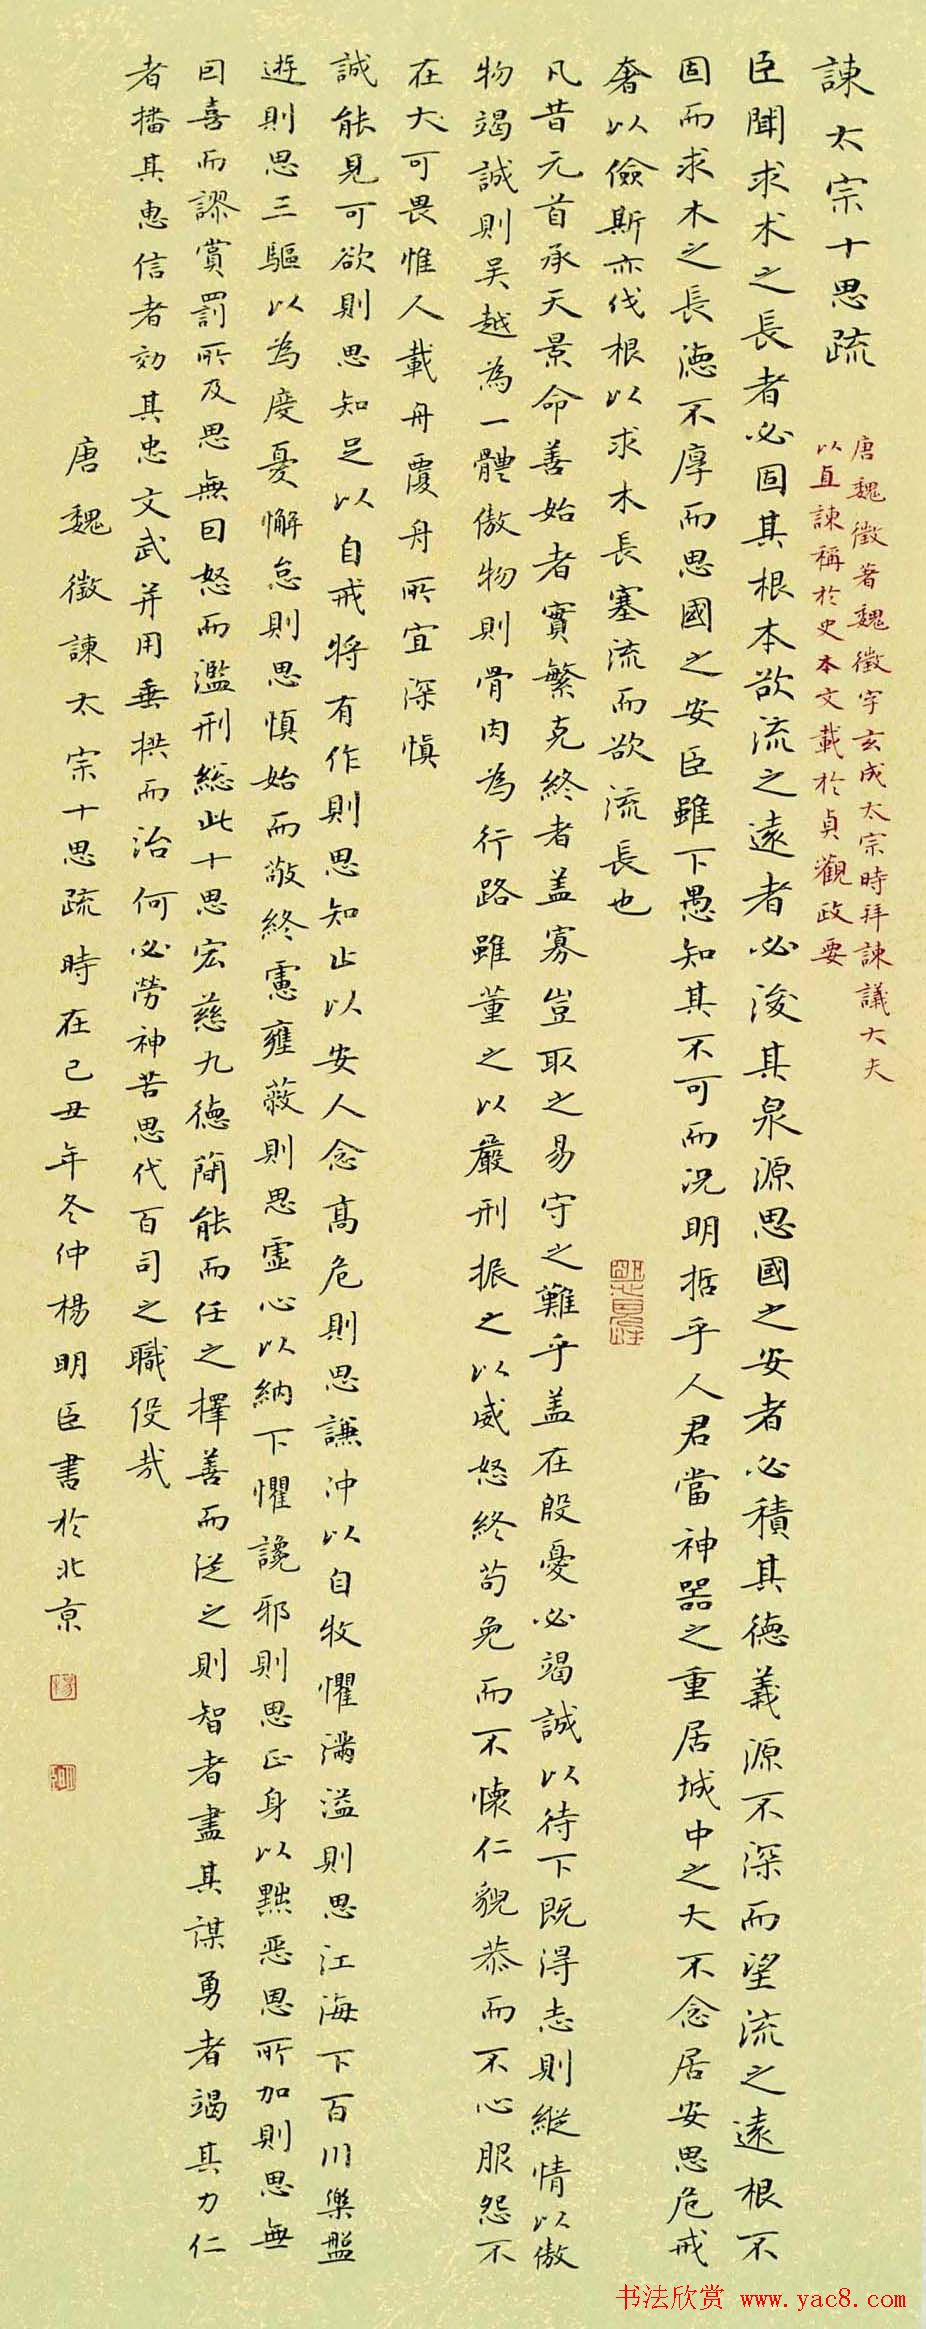 諫太宗十思疏
唐魏徵著魏徵字玄成太宗時拜諫議大夫
以直諫稱於史本文載於貞觀政要
臣聞求木之長者必固其根本欲流之遠者必浚其泉源思國之安者必積其德義源不深而望流之遠根不
固而求木之長德不厚而思國之安臣雖下愚知其不可而況明哲乎人君當神器之重居域中之大不念居安思危戒
奢以儉斯亦伐根以求木長塞流而欲流長也
凡昔元首承天景命善始者實繁克終者盖寡豈取之易守之難乎盖在殷憂必竭誠以待下既得志則縱情以傲
物竭誠則吴越為一體傲物則骨肉為行路雖董之以嚴刑振之以威怒終苟免而不懷仁貌恭而不心服怨不
在大可畏惟人載舟覆舟所宜深慎
誠能見可欲則思知足以自戒將有作則思知止以安人念高危則思謙沖以自牧懼滿溢則思江海下百川樂盤
遊則思三驅以為度憂懈怠則思慎始而敬終慮壅蔽則思虛心以納下懼讒邪則思正身以黜惡恩所加則思無
因喜而謬賞罰所及思無因怒而濫刑總此十思宏慈九德簡能而任之擇善而從之則智者盡其謀勇者竭其力仁
者播其惠信者効其忠文武并用垂拱而治何必勞神苦思代百司之職役哉
唐魏徵諫太宗十思疏時在己丑年冬仲楊明臣書於北京
书法欣赏 www.yac8.com